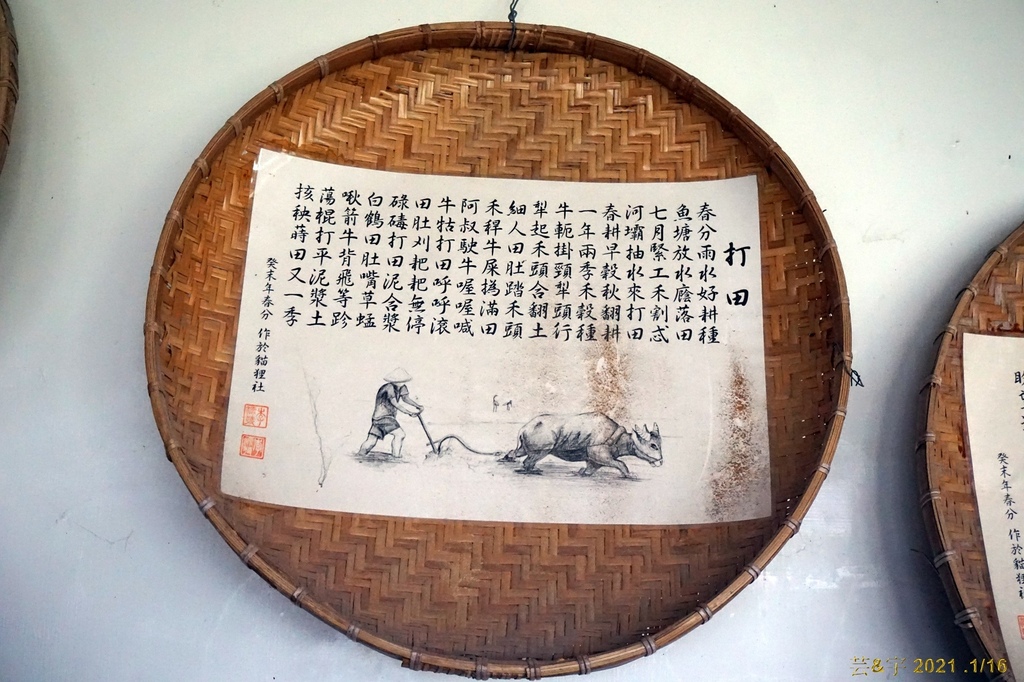 打田
春分雨水好耕種
魚塘放水廕落田
七月緊工禾割忒
河壩抽水來打田
春耕早穀秋翻耕
一年兩季禾穀種
牛軛掛頸犁頭行
犁起禾頭合翻土
細人田肚踏禾頭
禾稈牛屎撝滿田
阿叔駛牛喔喔喊
牛牯打田呼呼滾
田肚刈耙耙無停
碌碡打田泥合漿
白鶴田肚嘴草蜢
啾箭牛背飛等跈
蕩棍打平泥漿土
㧡秧蒔田又一季
癸未年春分 作於貓狸社
癸未年春分 作於貓狸社
芸&宇 2021 .1/16